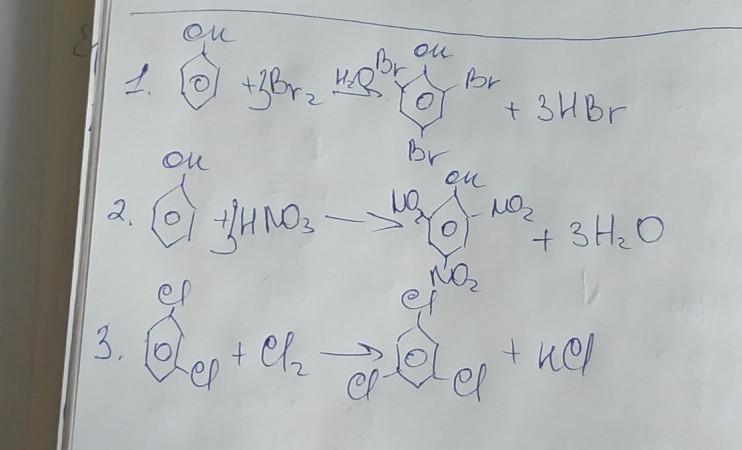 OH
1. + 3Br₂ H₂O Br OH Br Br + 3HBr
OH
2. + 3HNO₃ → NO₂ OH NO₂ NO₂ + 3H₂O
Cl
3. Cl + Cl₂ → Cl Cl Cl + HCl